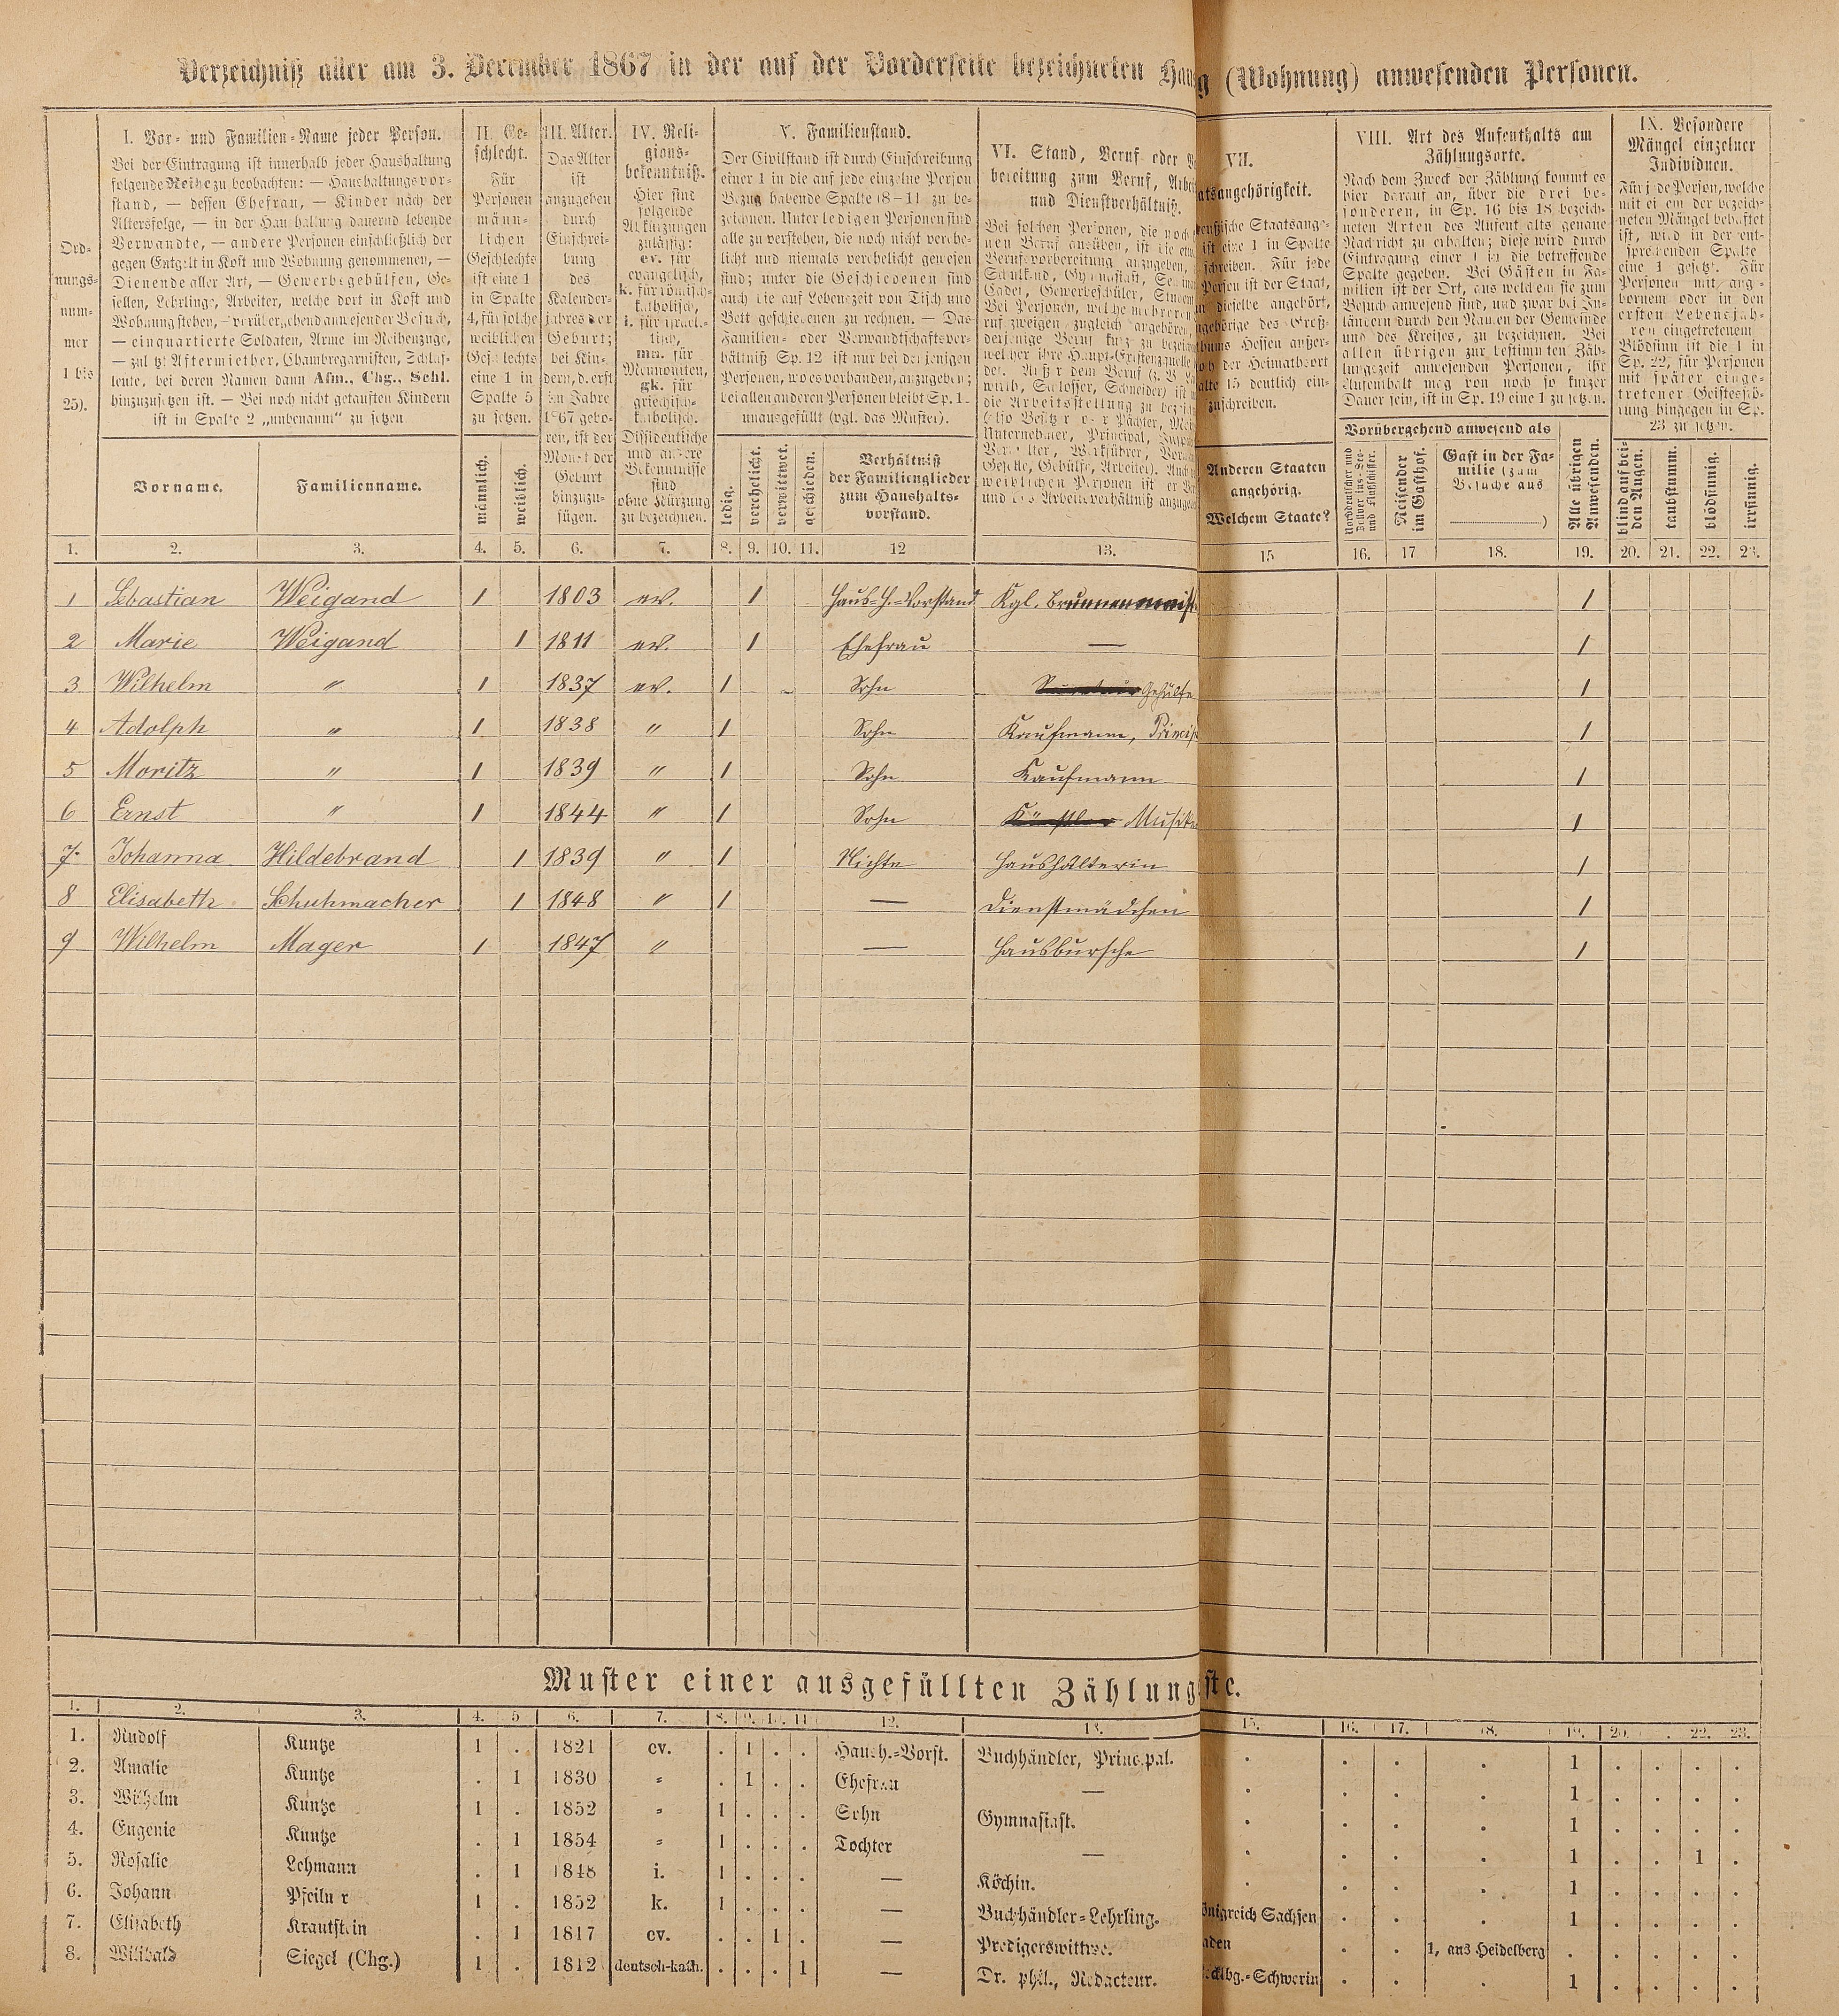 Verzeichniß aller am 3. December 1867 in der auf der Vorderseite bezeichneten Haus
g (Wohnung) anwesenden Personen.
Ord-
nungs-
num-
mer
1 bis
25).
I. Vor- und Familien-Name jeder Person.
Bei der Eintragung ist innerhalb jeder Haushaltung
folgende Reihe zu beobachten: — Haushaltungsvor-
stand, — dessen Ehefrau, — Kinder nach der
Altersfolge, — in der Haushaltung dauernd lebende
Verwandte, — andere Personen einschließlich der
gegen Entgelt in Kost und Wohnung genommenen, —
Dienende aller Art, — Gewerbsgehülfen, Ge-
sellen, Lehrlinge, Arbeiter, welche dort in Kost und
Wohnung stehen, — vorübergehend anwesender Besuch,
— einquartierte Soldaten, Arme im Reihenzuge,
— zuletzt Aftermiether, Chambregarnisten, Schlaf-
leute, bei deren Namen dann Afm., Chg., Schl.
hinzuzusetzen ist. — Bei noch nicht getauften Kindern
ist in Spalte 2 „unbenannt“ zu setzen
Vorname.
Familienname.
II. Ge-
schlecht.
Für
Personen
männ-
lichen
Geschlechts
ist eine 1
in Spalte
4, für solche
weiblichen
Geschlechts
eine 1 in
Spalte 5
zu setzen.
männlich.
weiblich.
III. Alter.
Das Alter
ist
anzugeben
durch
Einschrei-
bung
des
Kalender-
jahres der
Geburt;
bei Kin-
dern, d. erst
im Jahre
1867 gebo-
ren, ist der
Monat der
Geburt
hinzuzu-
fügen.
IV. Reli-
gions-
bekenntniß.
Hier sind
folgende
Abkürzungen
zulässig:
ev. für
evangelisch,
k. für römisch-
katholisch,
i. für israeli-
tisch,
mn. für
Mennoniten,
gk. für
griechisch-
katholisch.
Dissidentische
und andere
Bekenntnisse
sind
ohne Kürzung
zu bezeichnen.
V. Familienstand.
Der Civilstand ist durch Einschreibung
einer 1 in die auf jede einzelne Person
Bezug habende Spalte (8–11) zu be-
zeichnen. Unter ledigen Personen sind
alle zu verstehen, die noch nicht verehe-
licht und niemals verehelicht gewesen
sind; unter die Geschiedenen sind
auch die auf Lebenszeit von Tisch und
Bett geschiedenen zu rechnen. — Das
Familien- oder Verwandtschaftsver-
hältniß Sp. 12 ist nur bei denjenigen
Personen, wo es vorhanden, anzugeben;
bei allen anderen Personen bleibt Sp. 1
unausgefüllt (vgl. das Muster).
ledig.
verehelicht.
verwittwet.
geschieden.
Verhältniß
der Familienglieder
zum Haushalts-
vorstand.
VI. Stand, Beruf oder
bereitung zum Beruf, Arbei
und Dienstverhältniß.
Bei solchen Personen, die noch
nen Beruf ausüben, ist die etw
Berufsvorbereitung anzugeben,
Schulkind, Gymnasiast, Semina
Cadet, Gewerbeschüler, Student
Bei Personen, welche mehreren
rufszweigen zugleich angehören,
derjenige Beruf kurz zu bezei
welcher ihre Haupt-Existenzquelle
det. Außer dem Beruf
wirth, Schlosser, Schneider) ist
die Arbeitsstellung zu bezei
(also Besitzer oder Pächter, Mei
Unternehmer, Principal, Inspe
Verwalter, Werkführer,
Geselle, Gehülfe, Arbeiter). Auch
weiblichen Personen ist der Be
und das Arbeitsverhältniß anzugeb
VII.
atsangehörigkeit.
eußische Staatsange-
ist eine 1 in Spalte
schreiben. Für jede
Person ist der Staat,
dieselbe angehört,
ngehörige des Groß-
thums Hessen außer-
der Heimathsort
alte 15 deutlich ein-
zuschreiben.
Anderen Staaten
angehörig.
Welchem Staate?
VIII. Art des Aufenthalts am
Zählungsorte.
Nach dem Zweck der Zählung kommt es
hier darauf an, über die drei be-
sonderen, in Sp. 16 bis 18 bezeich-
neten Arten des Aufenthalts genaue
Nachricht zu erhalten; diese wird durch
Eintragung einer 1 in die betreffende
Spalte gegeben. Bei Gästen in Fa-
milien ist der Ort, aus welchem sie zum
Besuch anwesend sind, und zwar bei In-
ländern durch den Namen der Gemeinde
und des Kreises, zu bezeichnen. Bei
allen übrigen zur bestimmten Zäh-
lungszeit anwesenden Personen, ihr
Aufenthalt mag von noch so kurzer
Dauer sein, ist in Sp. 19 eine 1 zu setzen.
Vorübergehend anwesend als
Norddeutscher und
Zollvereins-See-
und Flußschiffer.
Reisender
im Gasthof.
Gast in der Fa-
milie (zum
Besuche aus
)
Alle übrigen
Anwesenden.
IX. Besondere
Mängel einzelner
Individuen.
Für jede Person, welche
mit einem der bezeich-
neten Mängel behaftet
ist, wird in der ent-
sprechenden Spalte
eine 1 gesetzt. Für
Personen mit ange-
bornem oder in den
ersten Lebensjah-
ren eingetretenem
Blödsinn ist die 1 in
Sp. 22, für Personen
mit später einge-
tretener Geistesstö-
rung hingegen in Sp.
23 zu setzen.
blind auf bei-
den Augen.
taubstumm.
blödsinnig.
irrsinnig.
1. 2. 3. 4. 5. 6. 7. 8. 9. 10. 11. 12 13. 15 16. 17 18. 19. 20. 21. 22. 23.
1 Sebastian Weigand 1 1803 ev. 1 Haus-H.-Vorstand Kgl. Brunnenmeist 1
2 Marie Weigand 1 1811 ev. 1 Ehefrau — 1
3 Wilhelm " 1 1837 ev. 1 Sohn Gehülfe 1
4 Adolph " 1 1838 " 1 Sohn Kaufmann, Princip 1
5 Moritz " 1 1839 " 1 Sohn Kaufmann 1
6 Ernst " 1 1844 " 1 Sohn Künstler Musik 1
7. Johanna Hildebrand 1 1839 " 1 Nichte Haushälterin 1
8 Elisabeth Schuhmacher 1 1848 " 1 — Dienstmädchen 1
9 Wilhelm Mager 1 1847 " — Hausbursche 1
Muster einer ausgefüllten Zählungs
ste.
1. 2. 3. 4. 5 6. 7. 8. 9. 1. 11 12. 13. 15. 16. 17. 18. 19. 20. . 22. 23.
1. Rudolf Kuntze 1 . 1821 ev. . 1 . . Haush.-Vorst. Buchhändler, Principal. . . . . 1 . . . .
2. Amalie Kuntze . 1 1830 " . 1 . . Ehefrau — . . . . 1 . . . .
3. Wilhelm Kuntze 1 . 1852 " 1 . . . Sohn Gymnasiast. . . . . 1 . . . .
4. Eugenie Kuntze . 1 1854 " 1 . . . Tochter — . . . . 1 . . 1 .
5. Rosalie Lehmann . 1 1848 i. 1 . . . — Köchin. . . . . 1 . . . .
6. Johann Pfeiln r 1 . 1852 k. 1 . . . — Buchhändler-Lehrling. önigreich Sachsen . . . 1 . . . .
7. Elisabeth Krautstein . 1 1817 ev. . . 1 . — Predigerswittwe. aden . . 1, aus Heidelberg . . . . .
8. Wilibald Siegel (Chg.) 1 . 1812 deutsch-kath. . . . 1 — Dr. phil., Redacteur. cklbg.-Schwerin . . . 1 . . . .